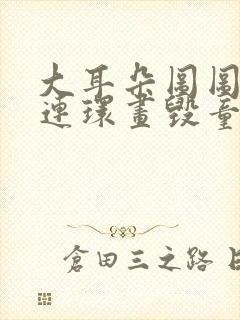 大耳朵圖圖
連環畫毀童
倉田三之路 日